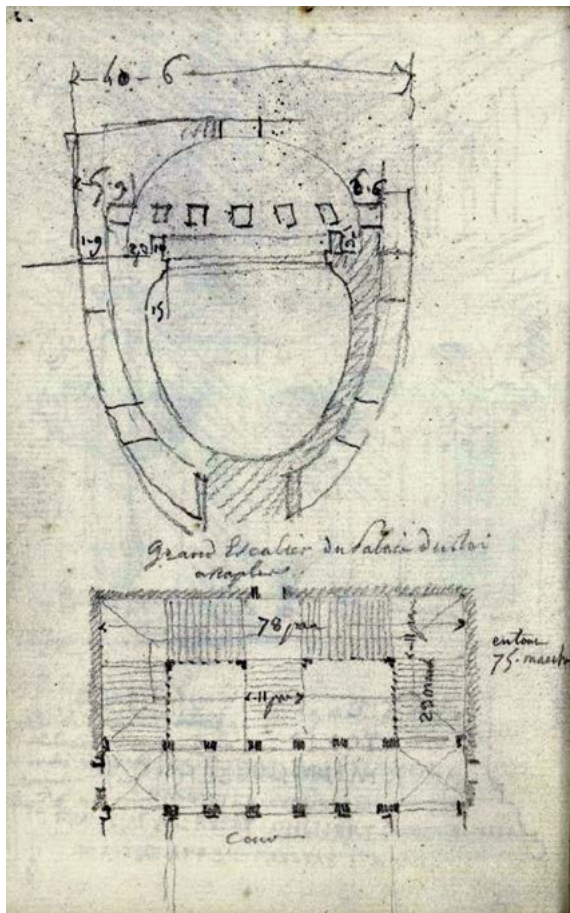 40-6
5-9
6-6
1-9
15
Grand Escalier du Palais du Roi
a Naples
78 pas
11 pas
11 pas
29 march
en tout
75-march
Cour